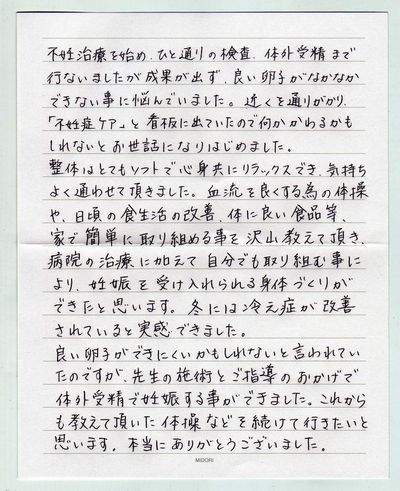 不妊治療を始め、ひと通りの検査、体外受精まで
行ないましたが成果が出ず、良い卵子がなかなか
できない事に悩んでいました。近くを通りがかり、
「不妊症ケア」と看板に出ていたので何かかわるかも
しれないとお世話になりはじめました。
整体はとてもソフトで心身共にリラックスでき、気持ち
よく通わせて頂きました。血流を良くする為の体操
や、日頃の食生活の改善、体に良い食品等、
家で簡単に取り組める事を沢山教えて頂き、
病院の治療に加えて自分でも取り組む事に
より、妊娠を受け入れられる身体づくりが
できたと思います。冬には冷え症が改善
されていると実感できました。
良い卵子ができにくいかもしれないと言われてい
たのですが、先生の施術とご指導のおかげで
体外受精で妊娠する事ができました。これから
も教えて頂いた体操などを続けて行きたいと
思います。本当にありがとうございました。
MIDORI